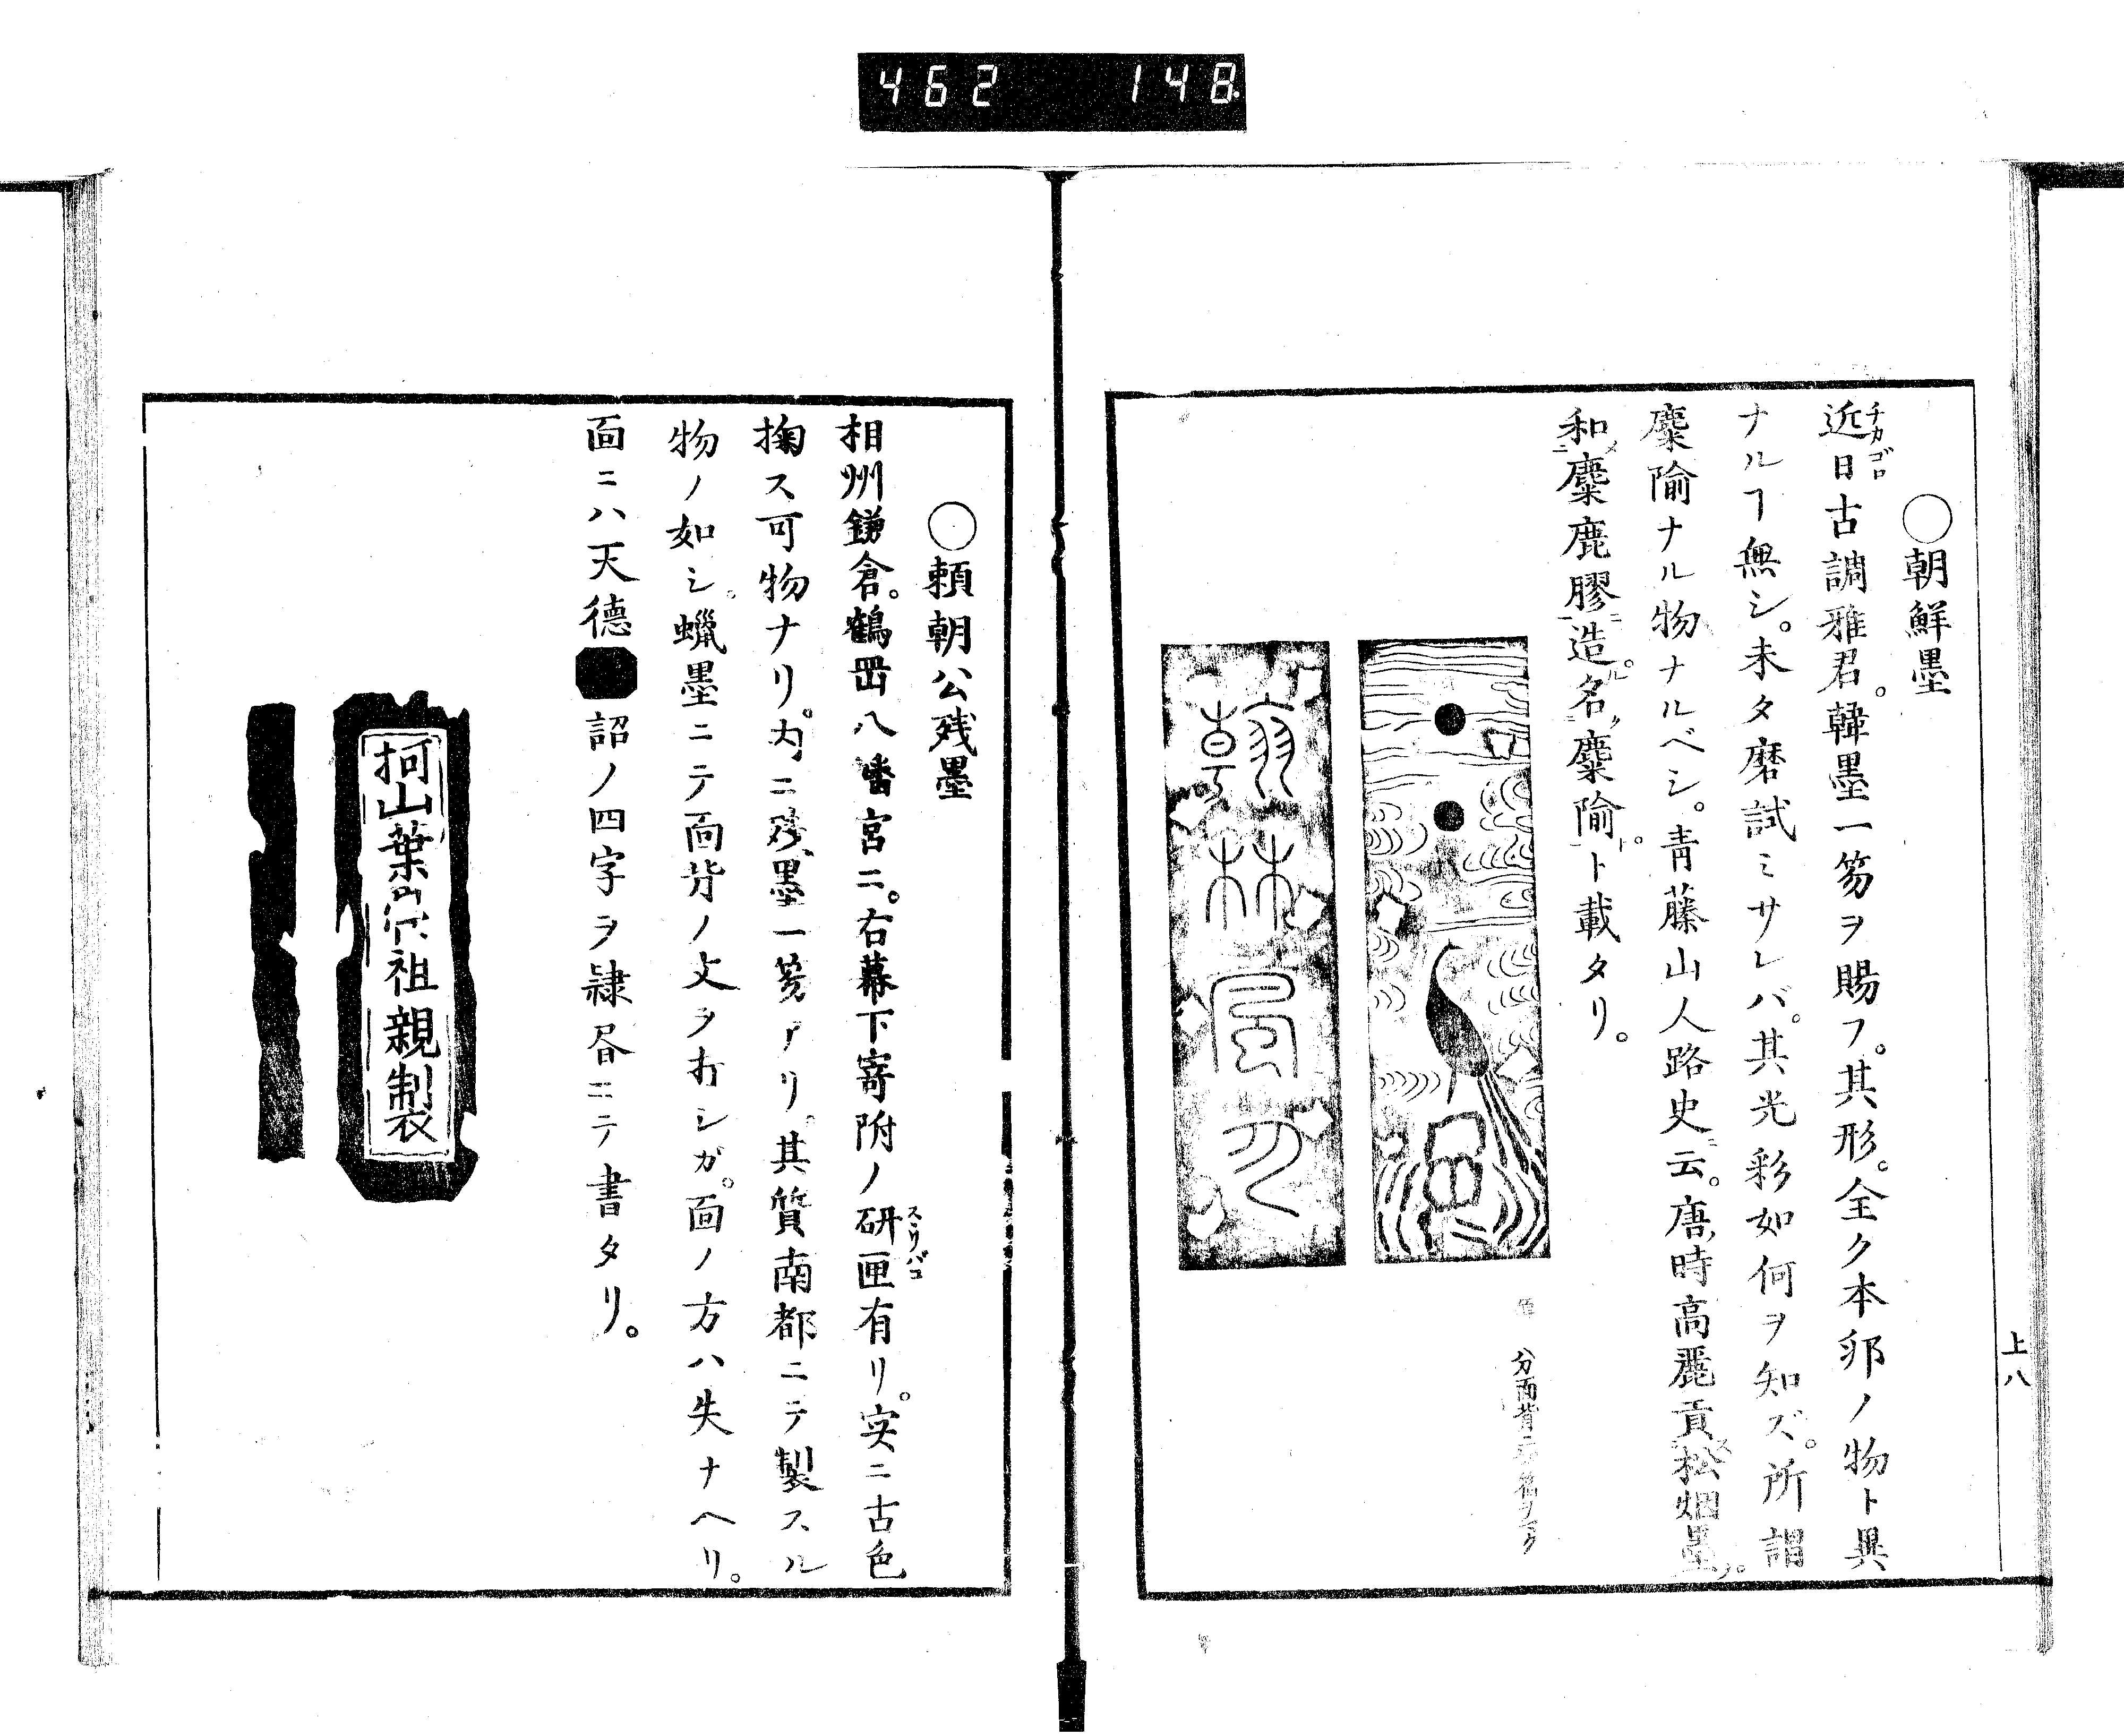 462 148
上八
○朝鮮墨
近日古調雅君。韓墨一笏ヲ賜フ。其形。全ク本邦ノ物ト異
チカゴロ
ナルヿ無シ。未タ磨試ミサレバ。其光彩如何ヲ知ズ。所謂
麋隃ナル物ナルベシ。青藤山人路史ニ云。唐ノ時高麗貢ス松烟墨ヲ。
和メニ麋鹿膠ニ造ル。名ク麋隃ト。ト載タリ。
翰林風月
分両背ニ
○頼朝公残墨
相州鎌倉。鶴岡八幡宮ニ。右幕下寄附ノ研匣有リ。実ニ古色
スヾリバコ
掬ス可物ナリ。内ニ残墨一笏アリ。其質南都ニテ製スル
物ノ如シ。蠟墨ニテ面背ノ文ヲ打シガ。面ノ方ハ失ナヘリ。
面ニハ天德 詔ノ四字ヲ隷昏ニテ書タリ。
柯山葉 祖親製